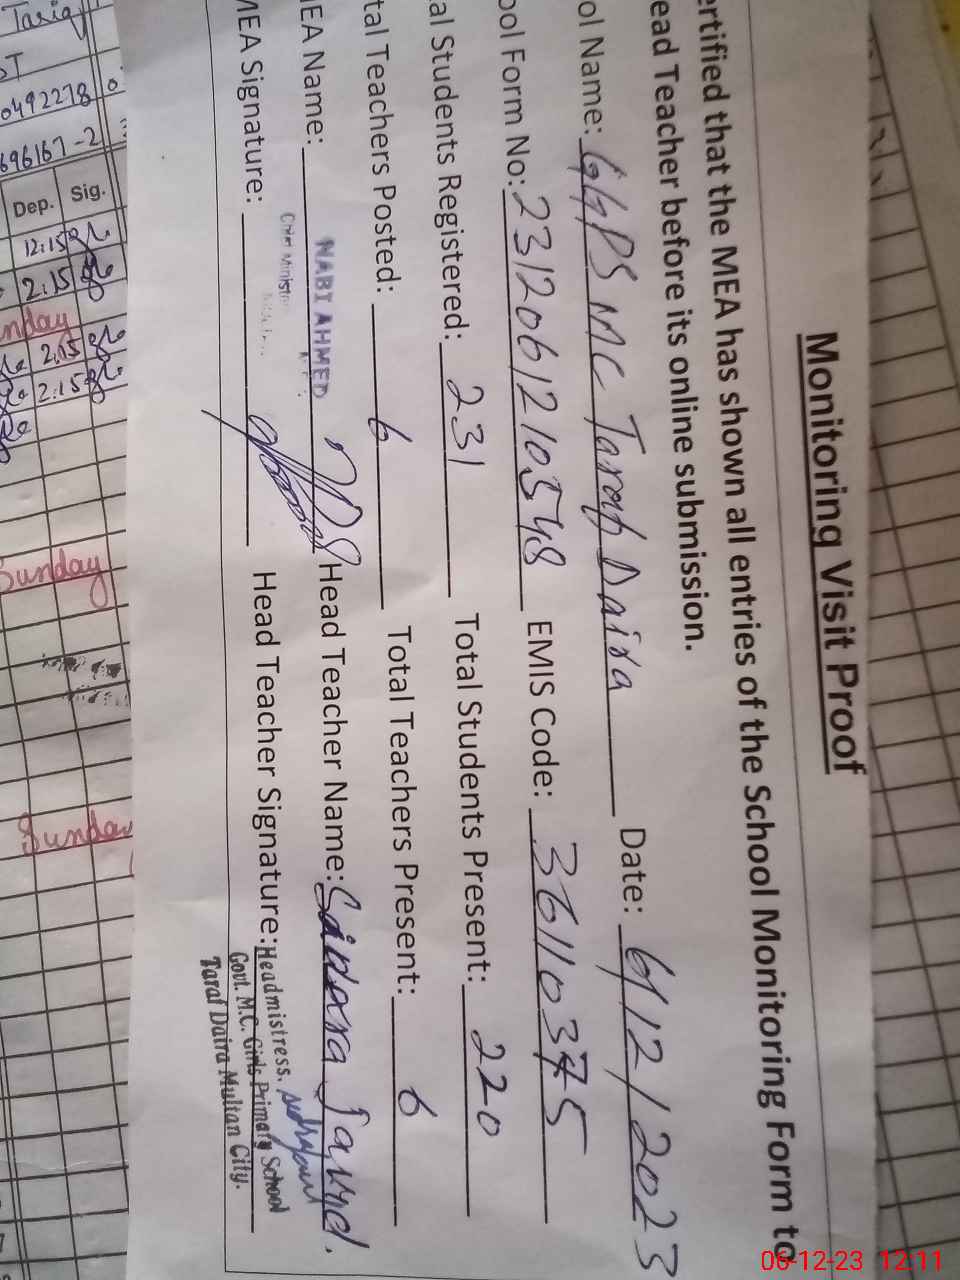 Monitoring Visit Proof
ertified that the MEA has shown all entries of the School Monitoring Form to
ead Teacher before its online submission.
ol Name: GGPS MC Taraf Daira Date: 6/12/2023
ool Form No: 2312061210548 EMIS Code: 36110375
al Students Registered: 231 Total Students Present: 220
tal Teachers Posted: 6 Total Teachers Present: 6
IEA Name: NABI AHMED Head Teacher Name: Saidara Javed.
MEA Signature: Head Teacher Signature: Headmistress,
Govt. M.C. Girls Primary School
Taraf Daira Multan City.
Chief Minister
Tariq
0492278
696167-2
Dep. Sig.
12:15
2:15
nday
2:15
2:15
Sunday
Sunday
06-12-23 12:11